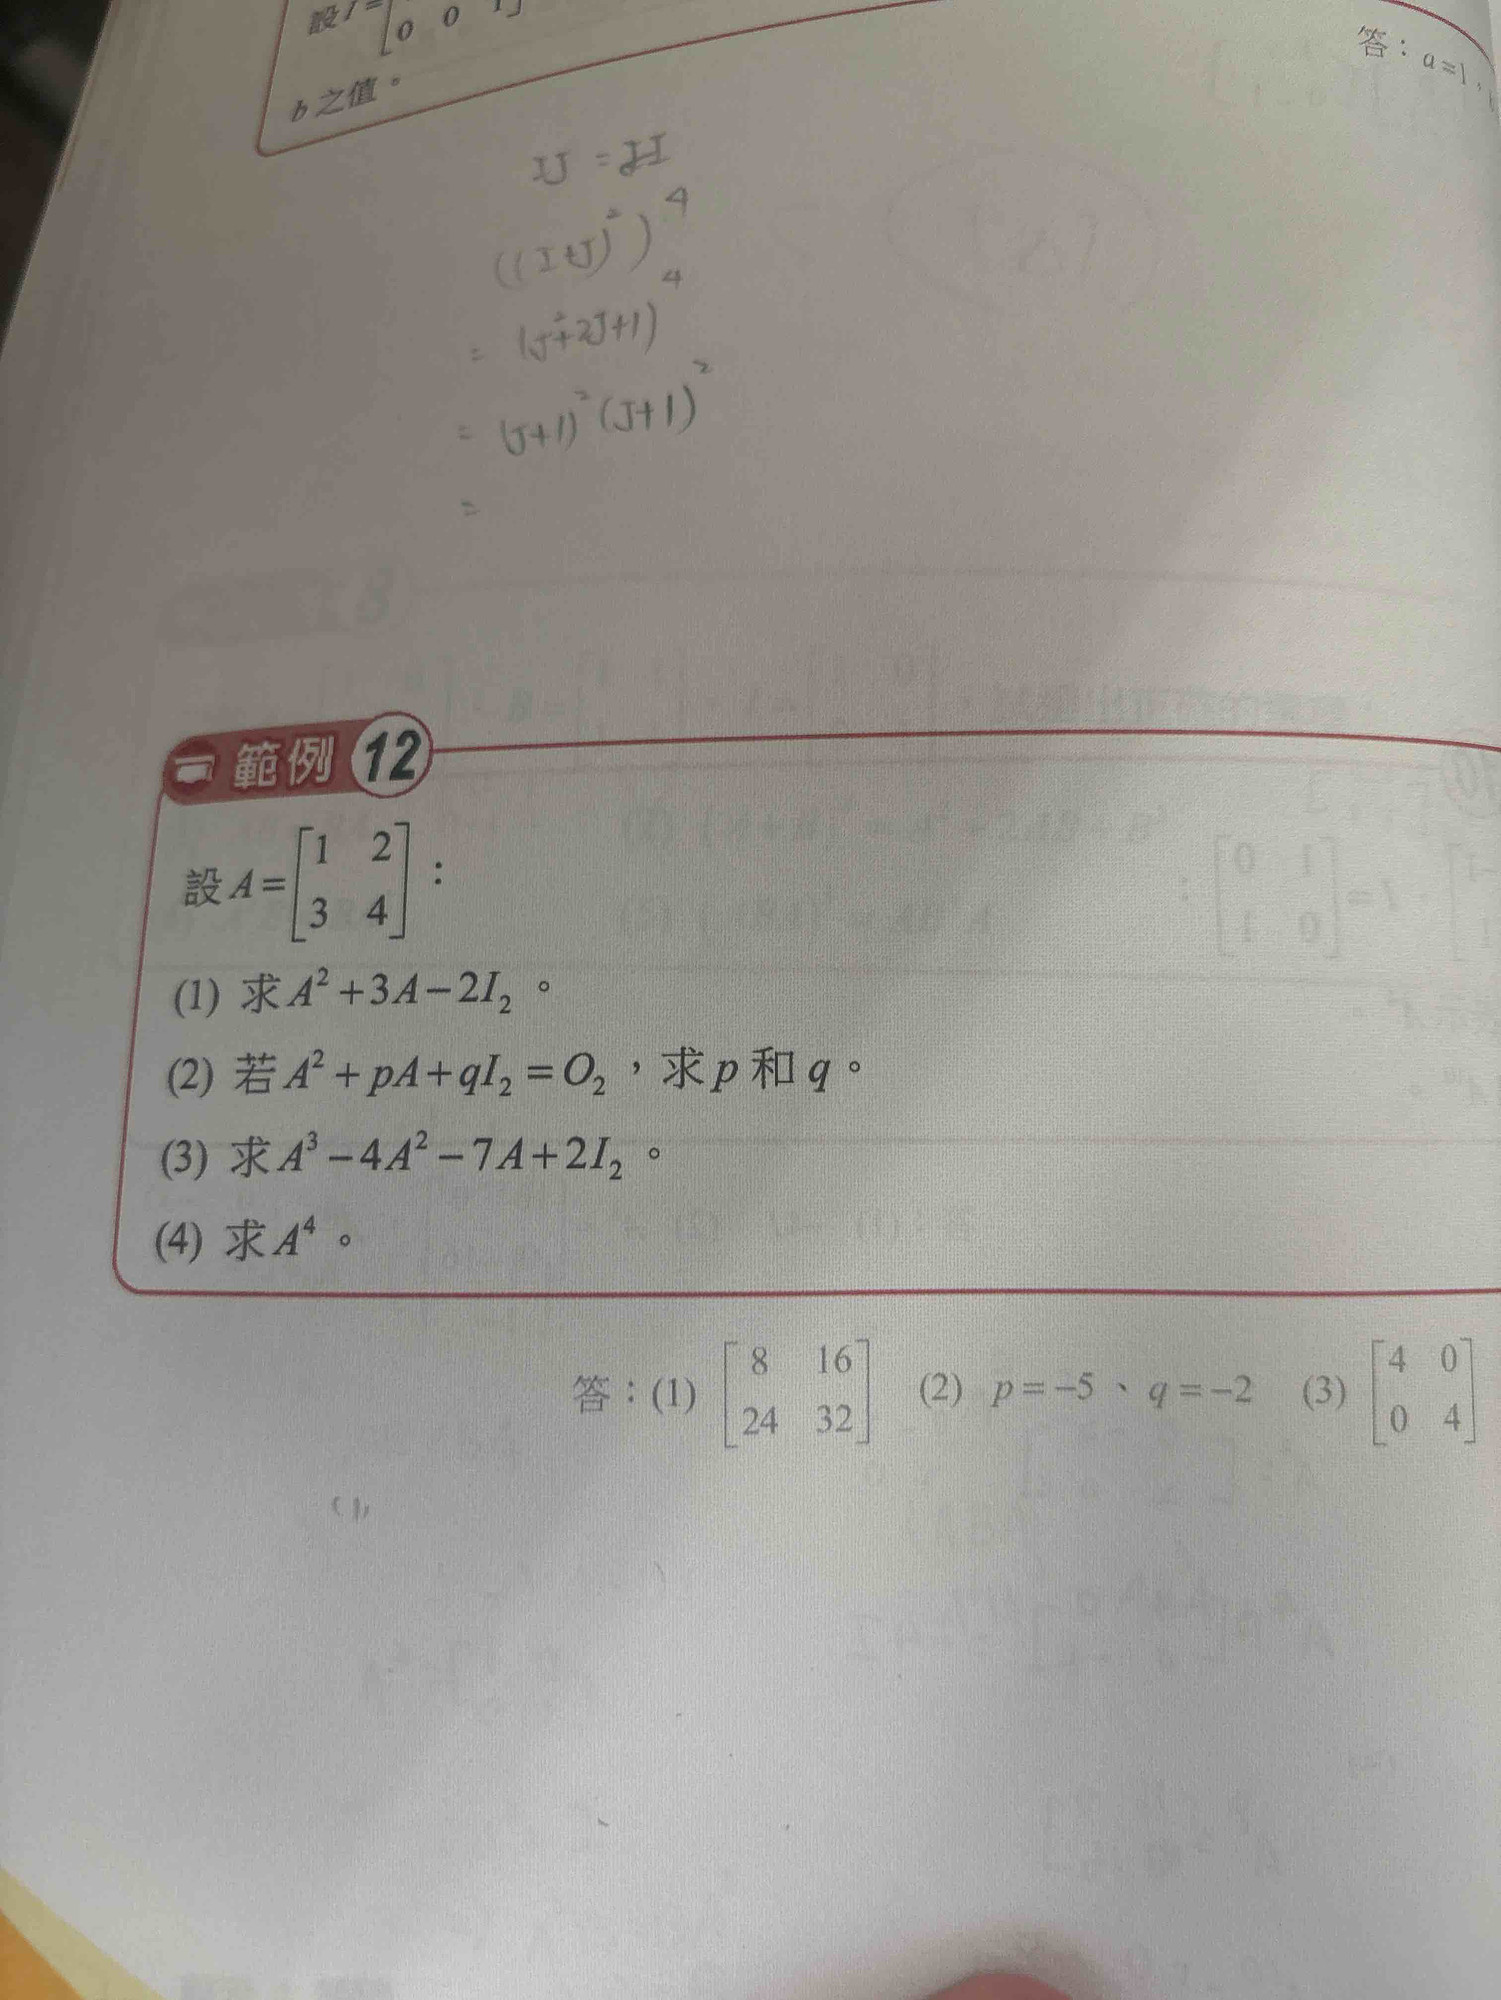 設I=
0 0 1
b之值。
答：a=1，
IJ = JI
((I+J)²)⁴
= (J²+2J+1)⁴
= (J+1)²(J+1)²
=
範例 12
設A=[1 2
3 4]：
(1) 求A²+3A−2I₂。
(2) 若A²+pA+qI₂=O₂，求p和q。
(3) 求A³−4A²−7A+2I₂。
(4) 求A⁴。
答：(1) [8 16
24 32] (2) p=−5、q=−2 (3) [4 0
0 4]
(1)